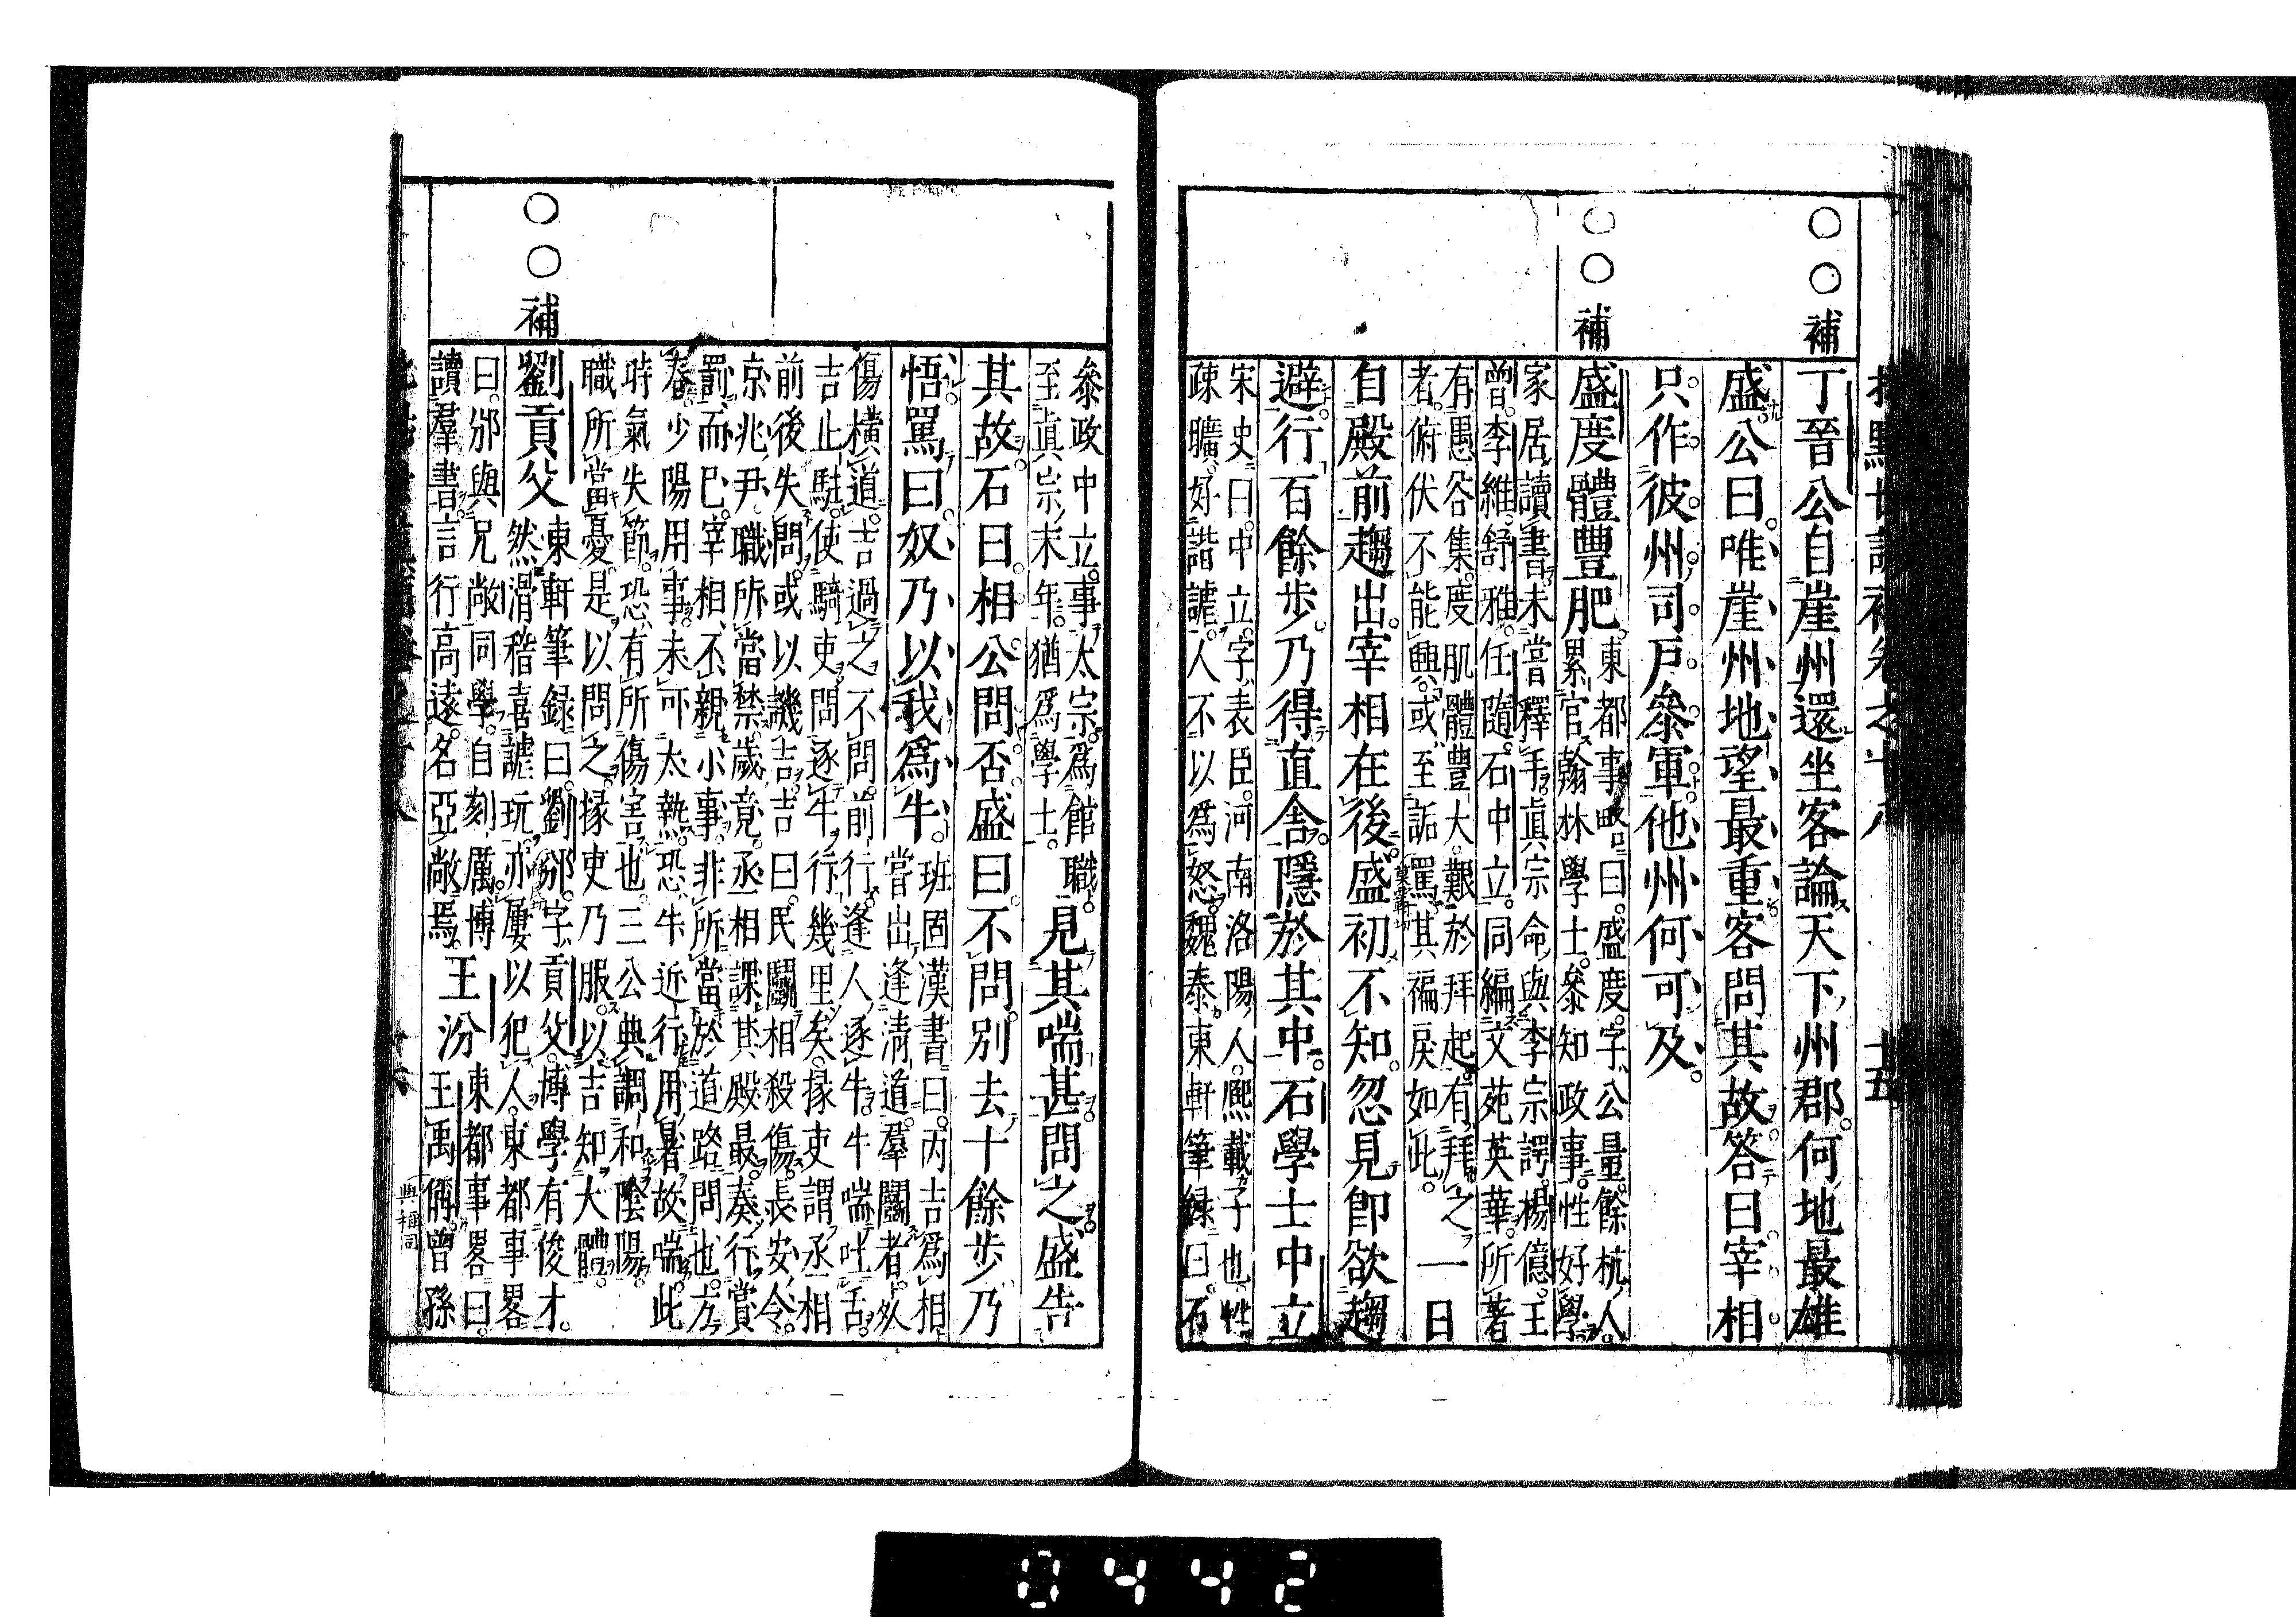 補
丁晉公自崖州還坐客論天下州郡何地最雄
盛公曰唯崖州地望最重客問其故答曰宰相
只作彼州司戶參軍他州何可及
補
盛度體豐肥東都事略曰盛度字公量餘杭人
累官翰林學士參知政事性好學
家居讀書未嘗釋手眞宗命與李宗諤楊億王
曾李維舒雅任隨石中立同編文苑英華所著
有愚谷集度肌體豐大艱於拜起有拜之
者俯伏不能興或至詬罵其褊戾如此一日
自殿前趨出宰相在後盛初不知忽見卽欲趨
避行百餘步乃得直舍隱於其中石學士中立
宋史曰中立字表臣河南洛陽人熙載子也性
疎曠好諧謔人不以爲怒魏泰東軒筆錄曰石
參政中立事太宗爲館職
至眞宗末年猶爲學士見其喘甚問之盛告
其故石曰相公問否盛曰不問別去十餘步乃
悟罵曰奴乃以我爲牛班固漢書曰丙吉爲相
當出逢淸道羣鬭者死
傷橫道吉過之不問前行逢人逐牛牛喘吐舌
吉止駐使騎吏問逐牛行幾里矣掾吏謂丞相
前後失問或以譏吉吉曰民鬭相殺傷長安令
京兆尹職所當禁歲竟丞相課其殿最奏行賞
罰而已宰相不親小事非所當於道路問也方
春少陽用事未可太熱恐牛近行用暑故喘此
時氣失節恐有所傷害也三公典調和陰陽
職所當憂是以問之掾吏乃服以吉知大體
補
劉貢父東軒筆錄曰劉邠字貢父博學有俊才
然滑稽喜謔玩亦屢以犯人東都事畧
曰邠與兄敞同學自刻厲博
讀羣書言行高遠名亞敞焉王汾東都事畧曰
王禹偁曾孫
十五
0442